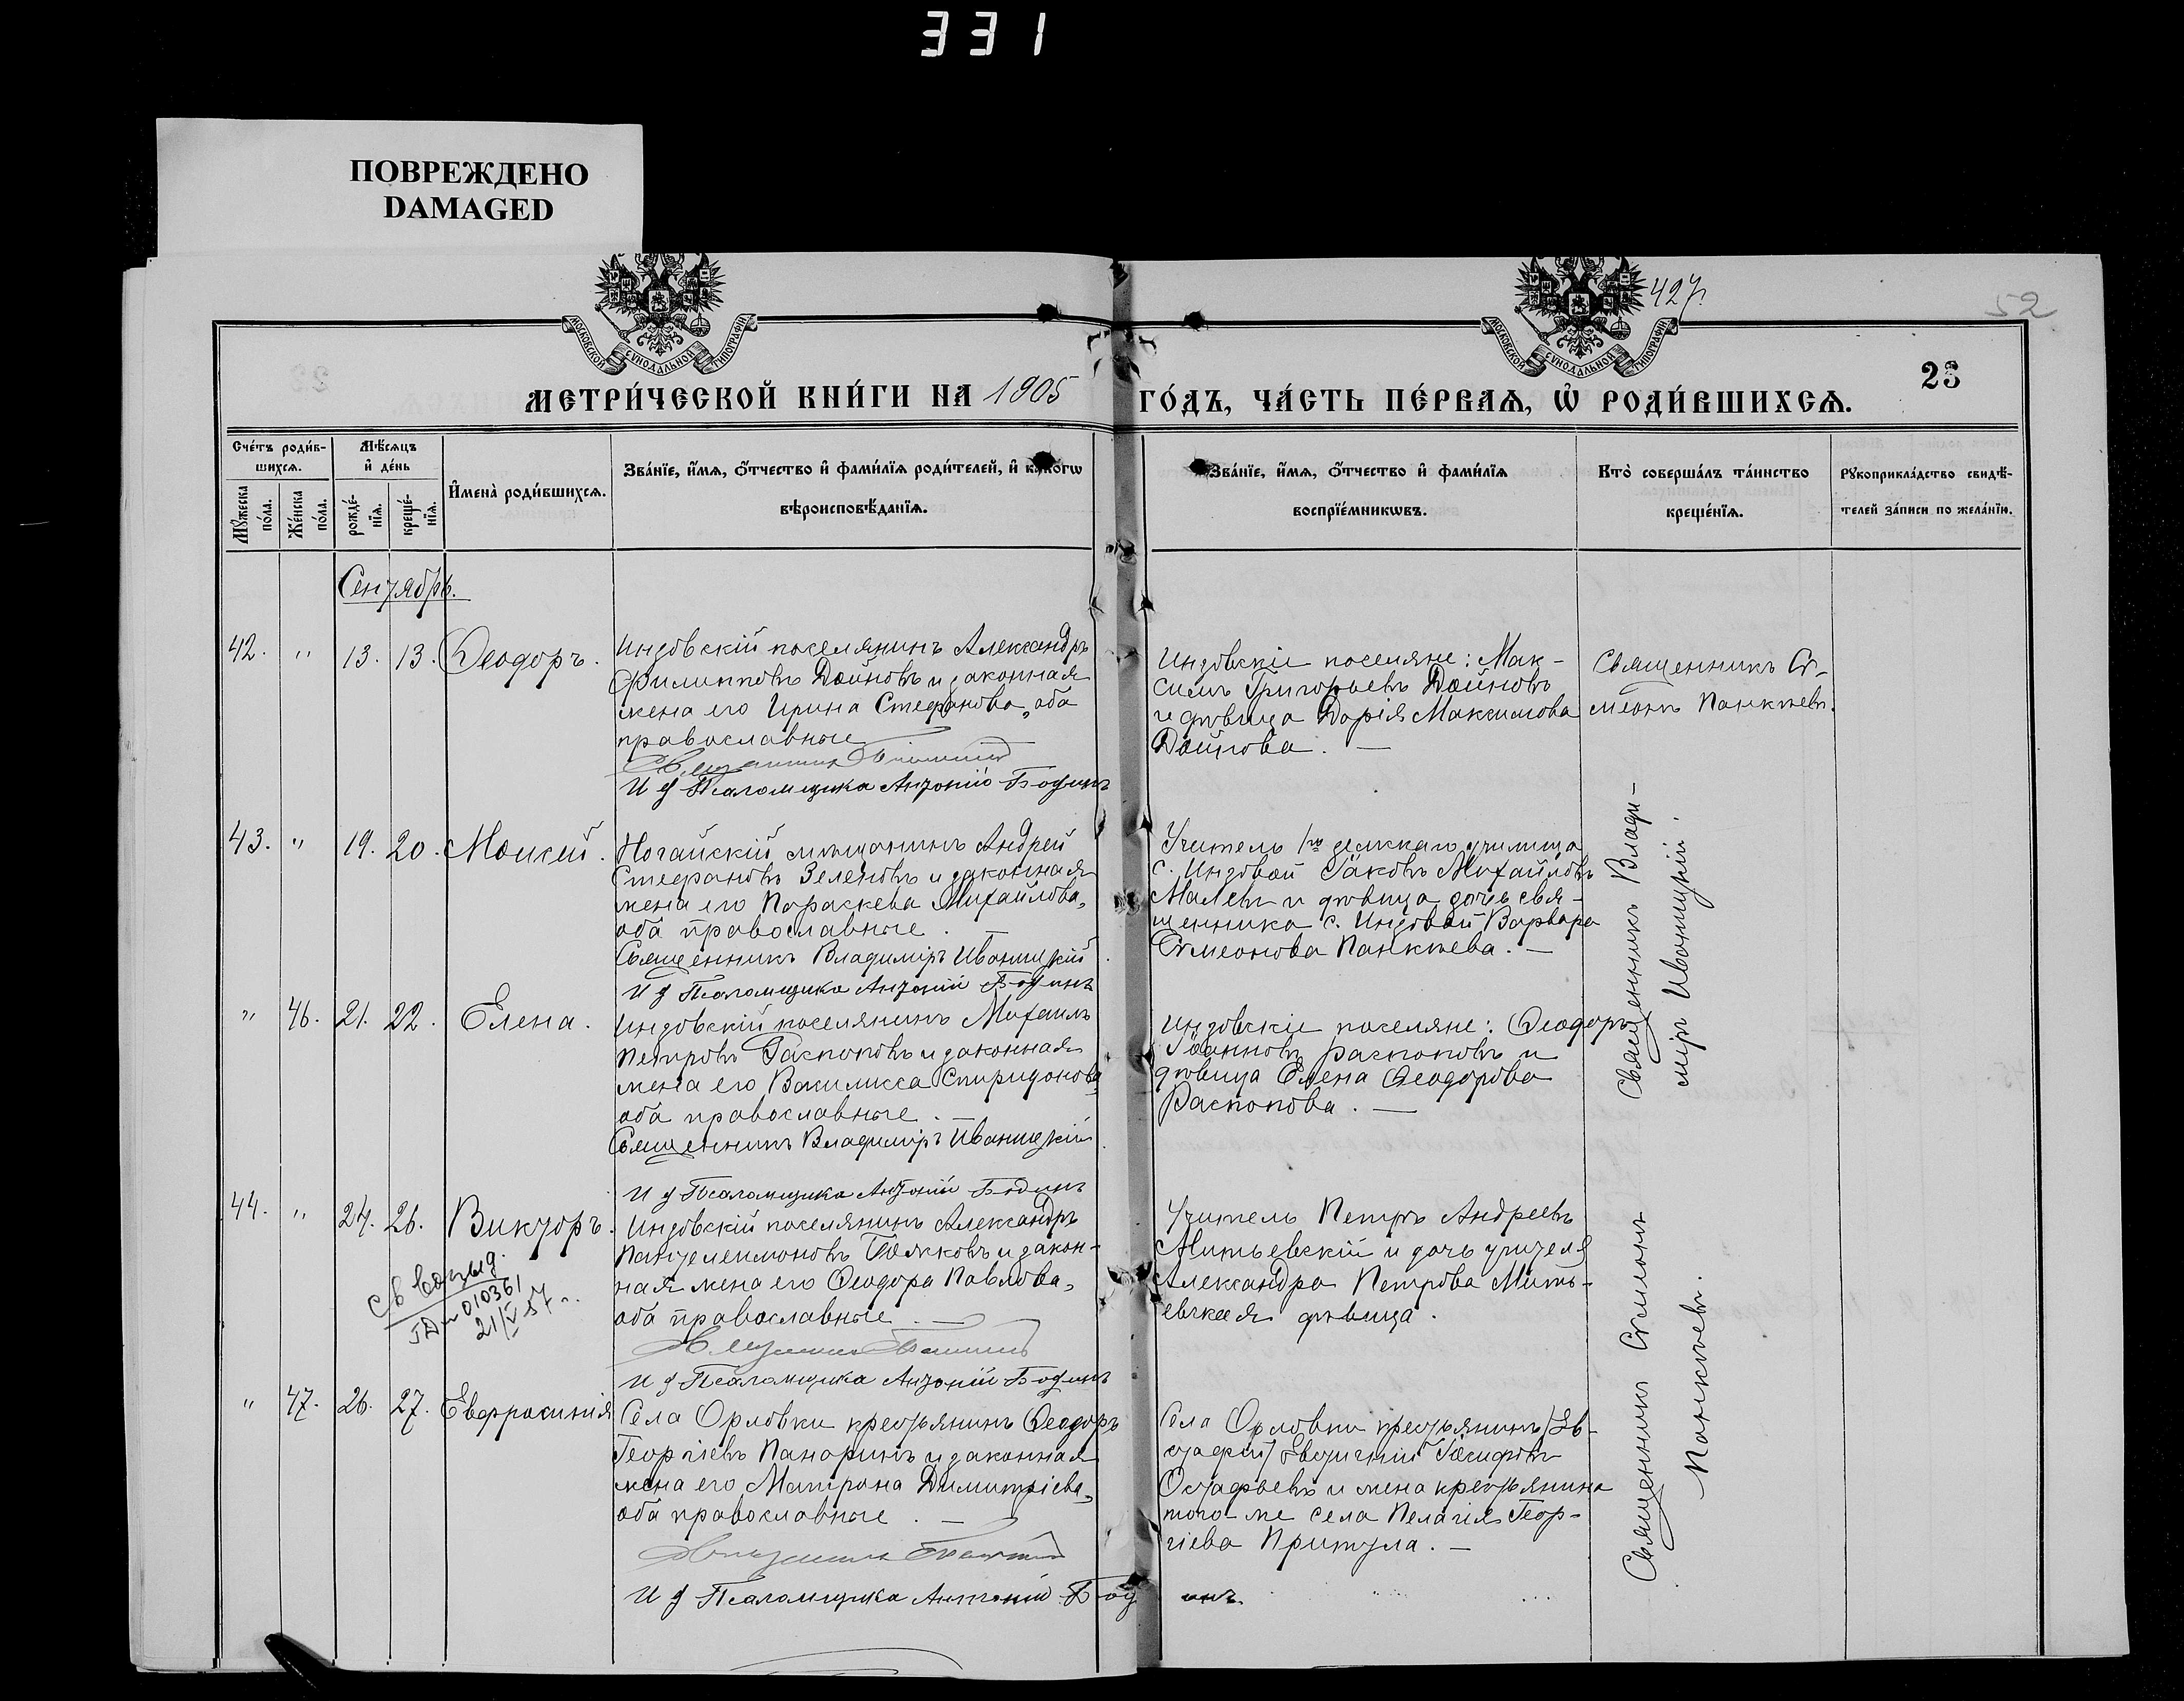 331
ПОВРЕЖДЕНО
DAMAGED
МОСКОВСКОЙ СѴНОДАЛЬНОЙ ТИПОГРАФІИ
МОСКОВСКОЙ СѴНОДАЛЬНОЙ ТИПОГРАФІИ
427.
52
23
МЕТРИ́ЧЕСКОЙ КНИ́ГИ НА 1905 ГО́ДЪ, ЧА́СТЬ ПЕ́РВАѦ, Ѡ҆ РОДИ́ВШИХСѦ.
Сче́тъ роди́в-
шихсѧ.
Мꙋ́жеска по́ла.
Же́нска по́ла.
Мѣ́сѧцъ
и҆ де́нь
рожде́-
нїѧ.
креще́-
нїѧ.
И҆мена̀ роди́вшихсѧ.
Зва́нїе, и҆́мѧ, ѻ҆́тчество и҆ фами́лїѧ роди́телей, и҆ како́гѡ
вѣроисповѣ́данїѧ.
Зва́нїе, и҆́мѧ, ѻ҆́тчество и҆ фами́лїѧ
воспрїе́мникѡвъ.
Кто̀ соверша́лъ та́инство
креще́нїѧ.
Рꙋкоприкла́дство свидѣ́-
телей за́писи по жела́нїю.
Сентябрь.
42. " 13. 13. Ѳеодоръ.
Индовскій поселянинъ Александръ
Филипповъ Дойновъ и законная
жена его Ирина Стефанова, оба
православные
И д Псаломщика Антоній Бодинъ
Индовскіе поселяне: Мак-
симъ Григорьевъ Дойновъ
и дѣвица Дарія Максимова
Дойнова. —
Священникъ Сѵ-
меонъ Панкѣевъ.
43. " 19. 20. Мокей.
Ногайскій мѣщанинъ Андрей
Стефановъ Зеленовъ и законная
жена его Параскева Михайлова,
оба православные. —
Священникъ Владиміръ Иваницкій.
И д Псаломщика Антоній Бодинъ
Учитель 1го земскаго училища
с. Индовой Іаковъ Михайловъ
Малевъ и дѣвица дочь свя-
щенника с. Индовой Варвара
Сѵмеонова Панкѣева. —
Священникъ Влади-
міръ Иваницкій.
" 46. 21. 22. Елена.
Индовскій поселянинъ Михаилъ
Петровъ Распоповъ и законная
жена его Василисса Спиридонова,
оба православные. —
Священникъ Владиміръ Иваницкій.
И д Псаломщика Антоній Бодинъ
Индовскіе поселяне: Ѳеодоръ
Іоанновъ Распоповъ и
дѣвица Елена Ѳеодорова
Распопова. —
44. " 24. 26. Викторъ.
21/V 57 г.
Индовскій поселянинъ Александръ
Пантелеимоновъ и закон-
ная жена его Ѳеодора Павлова,
оба православные. —
И д Псаломщика Антоній Бодинъ
Учитель Петръ Андреевъ
Митьевскій и дочь учителя
Александра Петрова Мить-
евская дѣвица.
Священникъ Сѵмеонъ
Панкѣевъ.
" 47. 26. 27. Евфросинія
Села Орловки крестьянинъ Ѳеодоръ
Георгіевъ Панаринъ и законная
жена его Матрона Димитріева,
оба православные. —
И д Псаломщика Антоній Бодинъ
Села Орловки крестьянинъ
Іосифовъ
Остафьевъ и жена крестьянина
того-же села Пелагія Геор-
гіева Притула. —